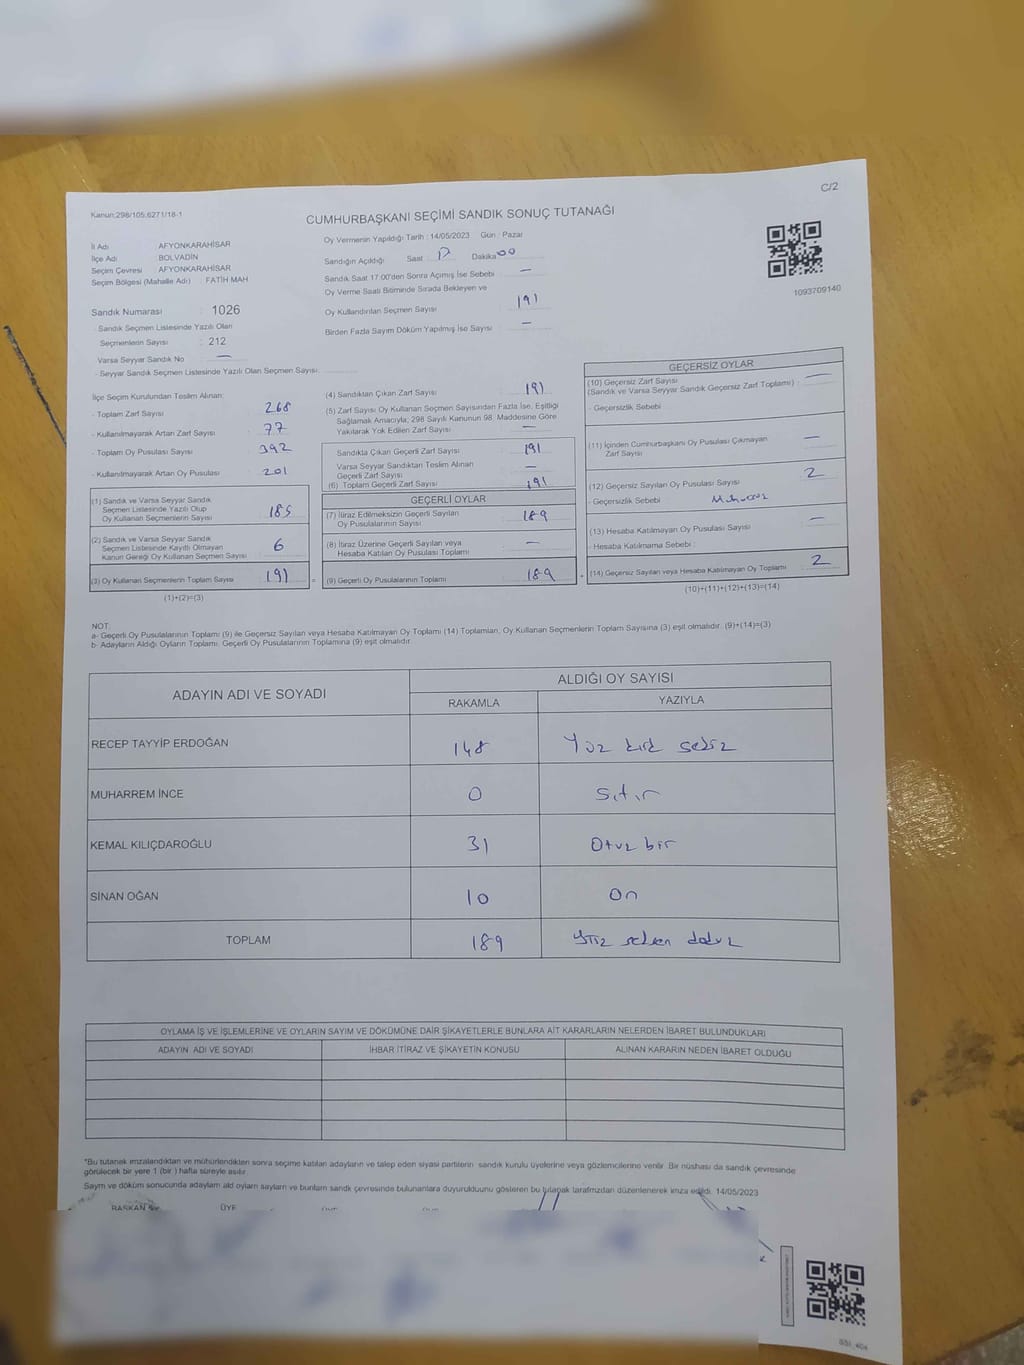 C/2
Kanun:298/105,6271/18-1
CUMHURBAŞKANI SEÇİMİ SANDIK SONUÇ TUTANAĞI
İl Adı : AFYONKARAHİSAR
İlçe Adı : BOLVADİN
Seçim Çevresi : AFYONKARAHİSAR
Seçim Bölgesi (Mahalle Adı) : FATİH MAH
Sandık Numarası : 1026
- Sandık Seçmen Listesinde Yazılı Olan
Seçmenlerin Sayısı : 212
Varsa Seyyar Sandık No : —
- Seyyar Sandık Seçmen Listesinde Yazılı Olan Seçmen Sayısı:
Oy Vermenin Yapıldığı Tarih : 14/05/2023 Gün : Pazar
Sandığın Açıldığı Saat 17 Dakika 00
Sandık Saat 17:00'den Sonra Açımış İse Sebebi : —
Oy Verme Saati Bitiminde Sırada Bekleyen ve
Oy Kullandırılan Seçmen Sayısı : 191
Birden Fazla Sayım Döküm Yapılmış İse Sayısı : —
1093709140
İlçe Seçim Kurulundan Teslim Alınan:
- Toplam Zarf Sayısı : 268
- Kullanılmayarak Artan Zarf Sayısı : 77
- Toplam Oy Pusulası Sayısı : 392
- Kullanılmayarak Artan Oy Pusulası : 201
(1) Sandık ve Varsa Seyyar Sandık
Seçmen Listesinde Yazılı Olup
Oy Kullanan Seçmenlerin Sayısı : 185
(2) Sandık ve Varsa Seyyar Sandık
Seçmen Listesinde Kayıtlı Olmayan
Kanun Gereği Oy Kullanan Seçmen Sayısı : 6
(3) Oy Kullanan Seçmenlerin Toplam Sayısı : 191 =
(1)+(2)=(3)
(4) Sandıktan Çıkan Zarf Sayısı : 191
(5) Zarf Sayısı Oy Kullanan Seçmen Sayısından Fazla İse, Eşitliği
Sağlamak Amacıyla; 298 Sayılı Kanunun 98. Maddesine Göre
Yakılarak Yok Edilen Zarf Sayısı : —
Sandıkta Çıkan Geçerli Zarf Sayısı : 191
Varsa Seyyar Sandıktan Teslim Alınan
Geçerli Zarf Sayısı : —
(6) Toplam Geçerli Zarf Sayısı : 191
GEÇERLİ OYLAR
(7) İtiraz Edilmeksizin Geçerli Sayılan
Oy Pusulalarının Sayısı : 189
(8) İtiraz Üzerine Geçerli Sayılan veya
Hesaba Katılan Oy Pusulası Toplamı : —
(9) Geçerli Oy Pusulalarının Toplamı : 189 +
GEÇERSİZ OYLAR
(10) Geçersiz Zarf Sayısı
(Sandık ve Varsa Seyyar Sandık Geçersiz Zarf Toplamı) : —
- Geçersizlik Sebebi :
(11) İçinden Cumhurbaşkanı Oy Pusulası Çıkmayan
Zarf Sayısı : —
(12) Geçersiz Sayılan Oy Pusulası Sayısı : 2
- Geçersizlik Sebebi :
(13) Hesaba Katılmayan Oy Pusulası Sayısı : —
- Hesaba Katılmama Sebebi :
(14) Geçersiz Sayılan veya Hesaba Katılmayan Oy Toplamı : 2
(10)+(11)+(12)+(13)=(14)
NOT:
a- Geçerli Oy Pusulalarının Toplamı (9) ile Geçersiz Sayılan veya Hesaba Katılmayan Oy Toplamı (14) Toplamları, Oy Kullanan Seçmenlerin Toplam Sayısına (3) eşit olmalıdır. (9)+(14)=(3)
b- Adayların Aldığı Oyların Toplamı, Geçerli Oy Pusulalarının Toplamına (9) eşit olmalıdır.
ADAYIN ADI VE SOYADI ALDIĞI OY SAYISI
RAKAMLA YAZIYLA
RECEP TAYYİP ERDOĞAN 148 Yüz kırk sekiz
MUHARREM İNCE 0 Sıfır
KEMAL KILIÇDAROĞLU 31 Otuz bir
SİNAN OĞAN 10 On
TOPLAM 189 Yüz seksen dokuz
OYLAMA İŞ VE İŞLEMLERİNE VE OYLARIN SAYIM VE DÖKÜMÜNE DAİR ŞİKAYETLERLE BUNLARA AİT KARARLARIN NELERDEN İBARET BULUNDUKLARI
ADAYIN ADI VE SOYADI İHBAR İTİRAZ VE ŞİKAYETİN KONUSU ALINAN KARARIN NEDEN İBARET OLDUĞU
*Bu tutanak imzalandıktan ve mühürlendikten sonra seçime katılan adayların ve talep eden siyasi partilerin sandık kurulu üyelerine veya gözlemcilerine verilir. Bir nüshası da sandık çevresinde
görülecek bir yere 1 (bir ) hafta süreyle asılır.
Sayım ve döküm sonucunda adayların aldı oyların sayıların ve bunların sandık çevresinde bulunanlara duyurulduunu gösteren bu tutanak tarafımızdan düzenlenerek imza edildi. 14/05/2023
BAŞKAN ÜYE